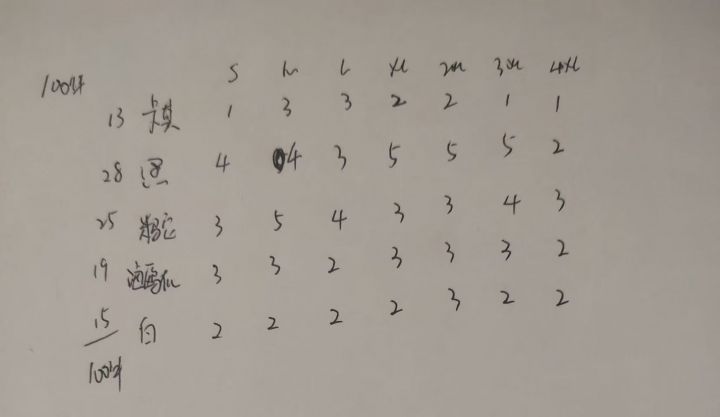 100件 S M L XL 2XL 3XL 4XL
13 卡其 1 3 3 2 2 1 1
28 黑 4 4 3 5 5 5 2
25 3 5 4 3 3 4 3
19 3 3 2 3 3 3 2
15 白 2 2 2 2 3 2 2
100件